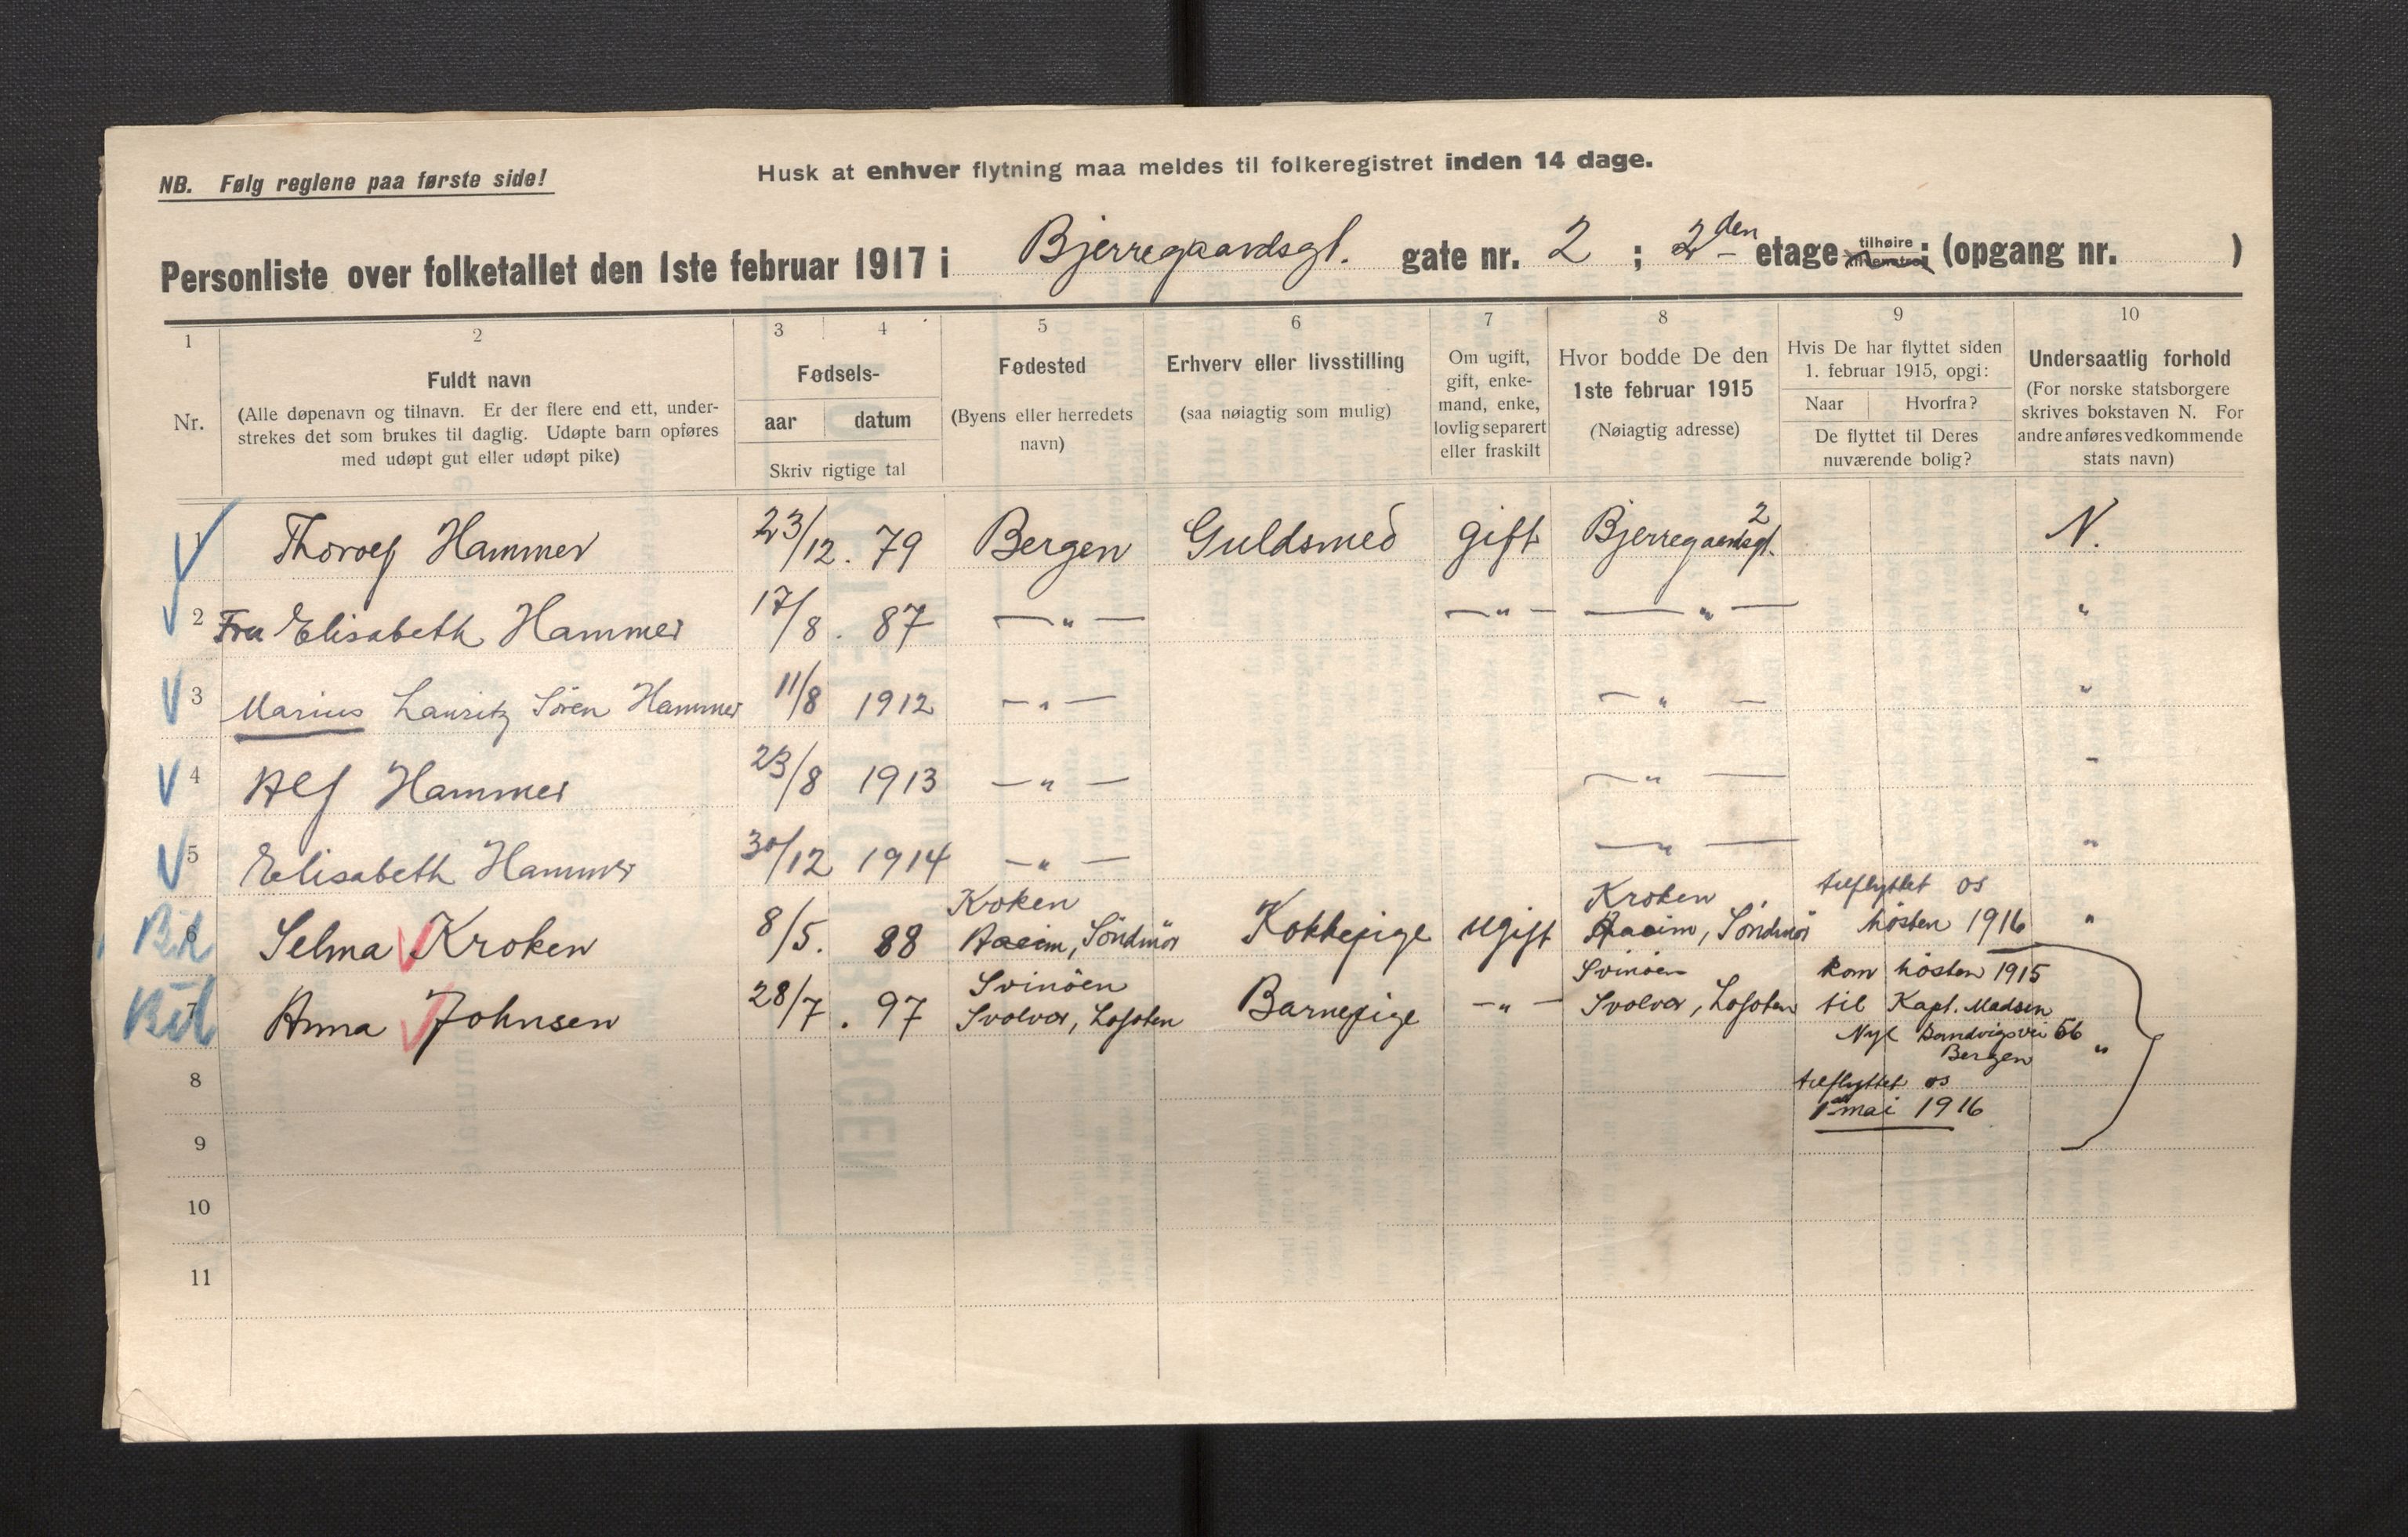 NB. Følg reglene paa første side!
Husk at enhver flytning maa meldes til folkeregistret inden 14 dage.
Personliste over folketallet den 1ste februar 1917 i Bjerregaardsgt. gate nr. 2 ; 2den etage tilhøire tilvenstre; (opgang nr. )
1 2 3 4 5 6 7 8 9 10
Nr.
Fuldt navn
(Alle døpenavn og tilnavn. Er der flere end ett, under-
strekes det som brukes til daglig. Udøpte barn opføres
med udøpt gut eller udøpt pike)
Fødsels-
aar datum
Skriv rigtige tal
Fødested
(Byens eller herredets
navn)
Erhverv eller livsstilling
(saa nøiagtig som mulig)
Om ugift,
gift, enke-
mand, enke,
lovlig separert
eller fraskilt
Hvor bodde De den
1ste februar 1915
(Nøiagtig adresse)
Hvis De har flyttet siden
1. februar 1915, opgi:
Naar Hvorfra?
De flyttet til Deres
nuværende bolig?
Undersaatlig forhold
(For norske statsborgere
skrives bokstaven N. For
andre anføres vedkommende
stats navn)
1 Thorolf Hammer 23/12. 79 Bergen Guldsmed gift Bjerregaardsgt. 2 N.
2 Fru Elisabeth Hammer 17/8. 87 — " — — " — — " — "
3 Marius Lauritz Sören Hammer 11/8 1912 — " — — " — "
4 Alf Hammer 23/8 1913 — " — — " — "
5 Elisabeth Hammer 30/12 1914 — " — — " — "
Kroken Kroken tilflyttet os
6 Selma Kroken 8/5. 88 Söndmör Kokkepige ugift Söndmör hösten 1916 "
Svinöen Svinöen kom hösten 1915
7 Anna Johnsen 28/7. 97 Svolvær, Lofoten Barnepige — " — Svolvær, Lofoten til Kapt. Madsen
Nye Sandvigsvei 56 "
Bergen
8 tilflyttet os
1 mai 1916
9
10
11